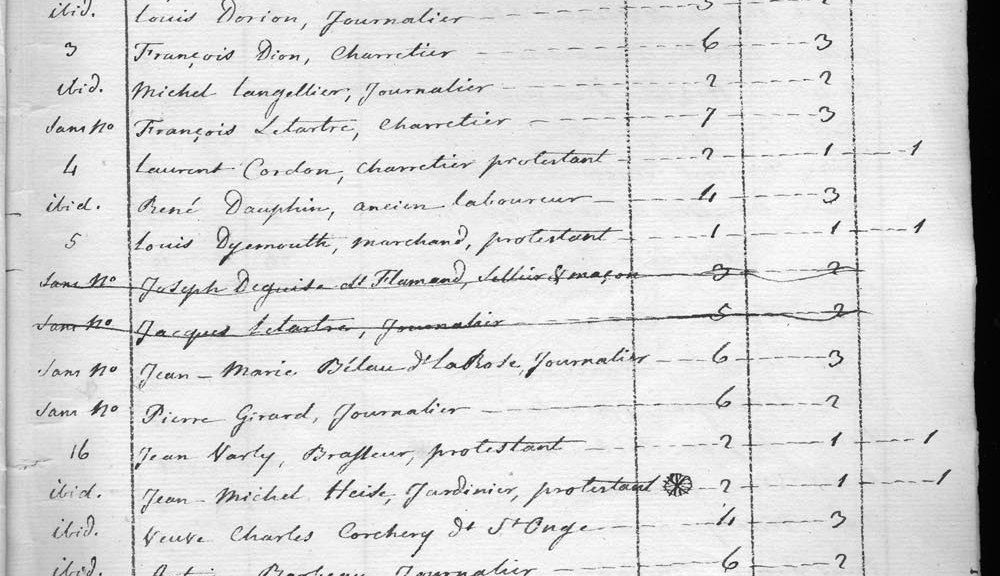 ibid. Louis Dorion, Journalier 3 2
3 François Dion, Charretier 6 3
ibid. Michel Langellier, Journalier 2 2
Sans No François Letartre, Charretier 7 3
4 Laurent Cordon, Charretier protestant 2 1 1
ibid. René Dauphin, ancien laboureur 4 3
5 Louis Dyemouth, marchand, protestant 1 1 1
Sans No Joseph Deguise dt Flamand, Sellier & maçon 3 2
Sans No Jacques Letartre, Journalier 5 2
Sans No Jean-Marie Bélau dt laRose, Journalier 6 3
Sans No Pierre Girard, Journalier 6 2
16 Jean Varly, Brasseur, protestant 2 1 1
ibid. Jean-Michel Heise, Jardinier, protestant 2 1 1
ibid. Veuve Charles Corchery dt St Onge 4 3
ibid. Barbeau, Journalier 6 2